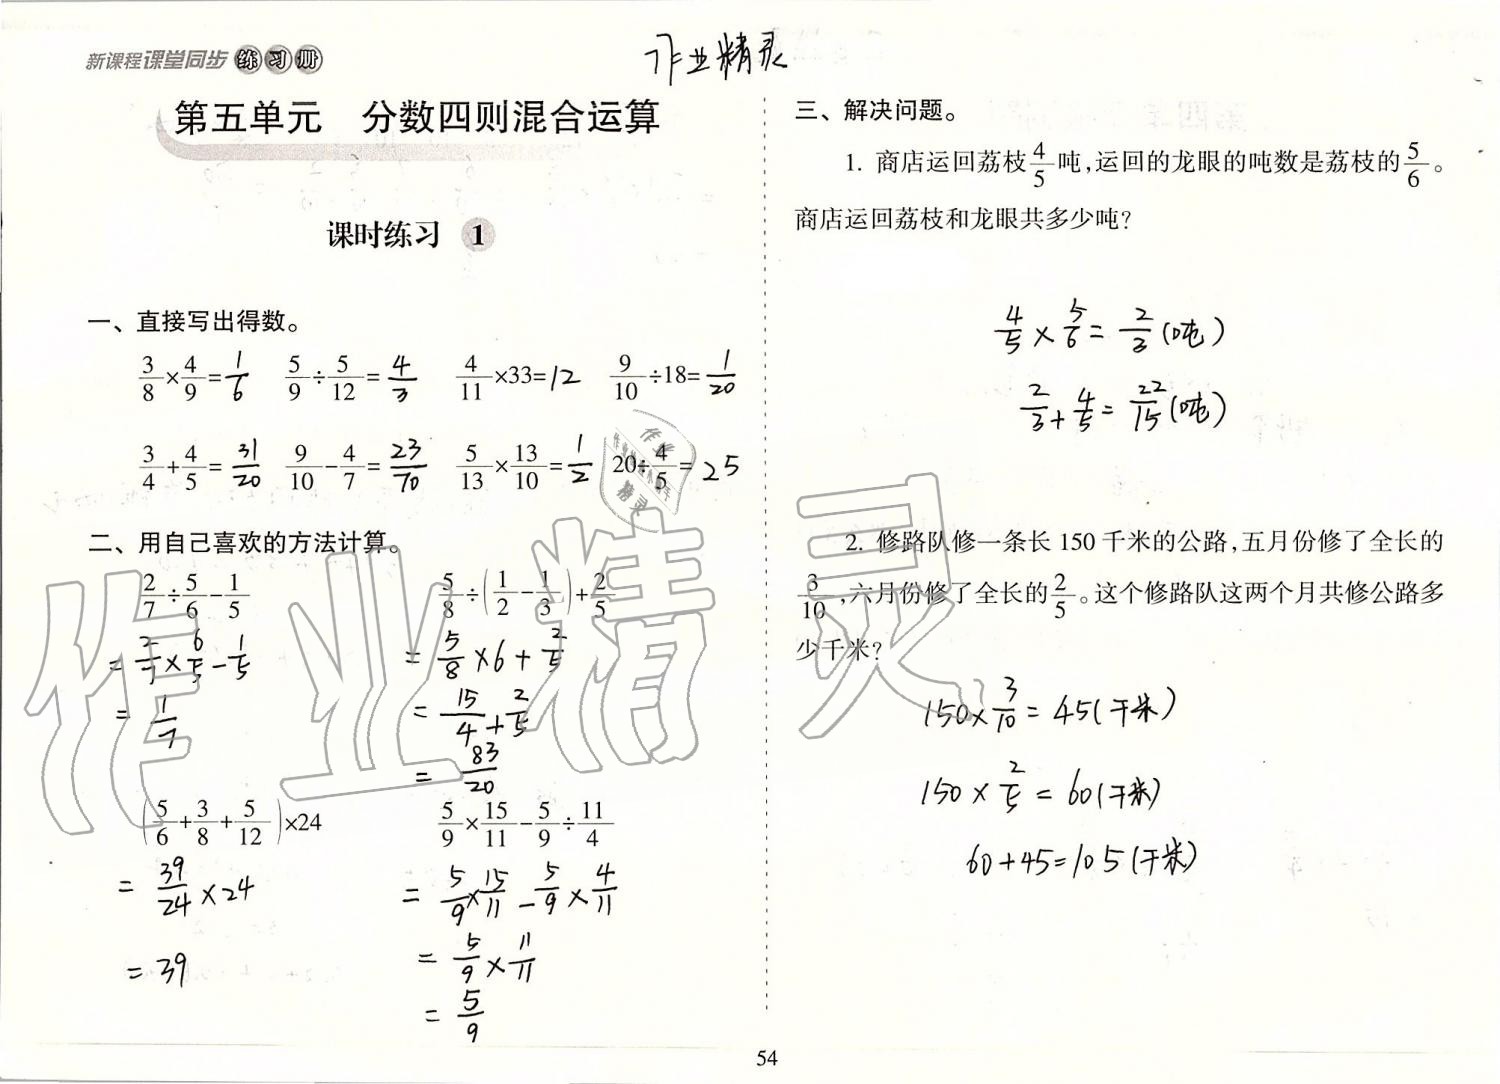 新课程课堂同步练习册
作业精灵
第五单元 分数四则混合运算
课时练习 1
一、直接写出得数。
3/8×4/9=1/6 5/9÷5/12=4/3 4/11×33=12 9/10÷18=1/20
3/4+4/5=31/20 9/10-4/7=23/70 5/13×13/10=1/2 20÷4/5=25
二、用自己喜欢的方法计算。
2/7÷5/6-1/5
=2/7×6/5-1/5
=1/7
5/8÷(1/2-1/3)+2/5
=5/8×6+2/5
=15/4+2/5
=83/20
(5/6+3/8+5/12)×24
=39/24×24
=39
5/9×15/11-5/9÷11/4
=5/9×15/11-5/9×4/11
=5/9×11/11
=5/9
三、解决问题。
1. 商店运回荔枝4/5吨,运回的龙眼的吨数是荔枝的5/6。
商店运回荔枝和龙眼共多少吨?
4/5×5/6=2/3(吨)
2/3+4/5=22/15(吨)
2. 修路队修一条长150千米的公路,五月份修了全长的
3/10,六月份修了全长的2/5。这个修路队这两个月共修公路多
少千米?
150×3/10=45(千米)
150×2/5=60(千米)
60+45=105(千米)
54
作业精灵